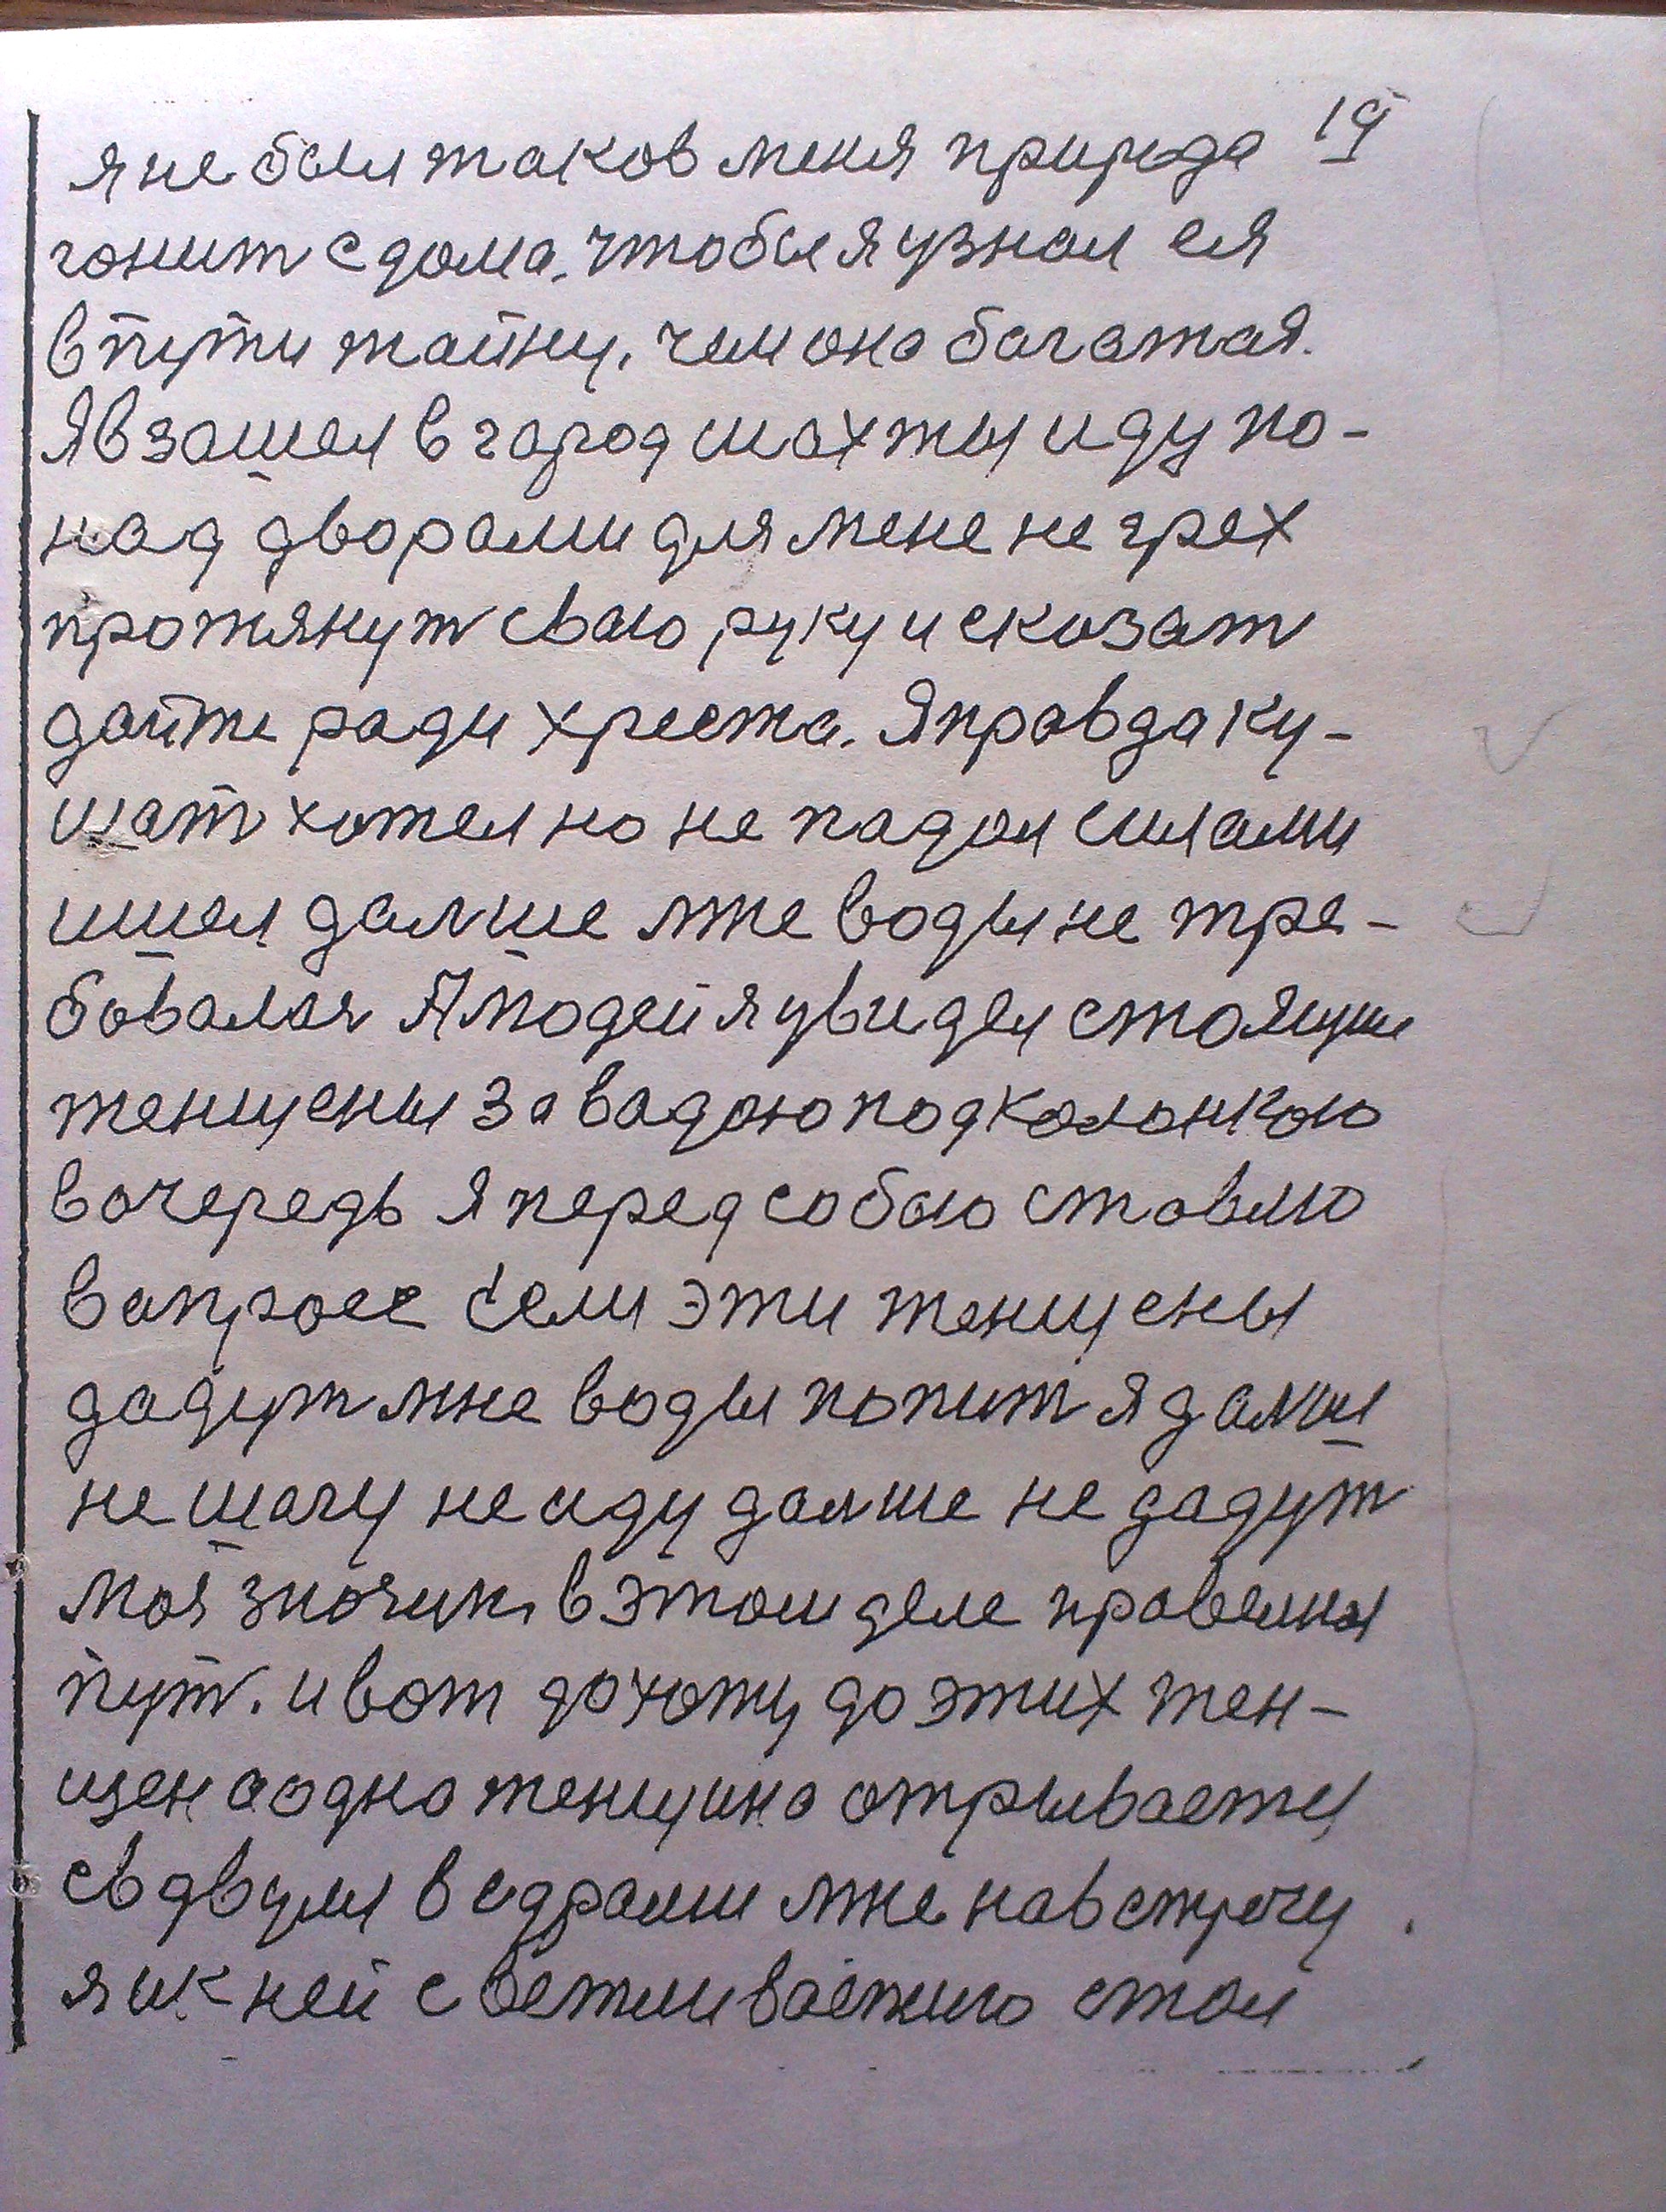 19
я не был таков меня природа
гонит с дома, чтобы я узнал ея
в пути тайну, чем она багатая.
Я взашел в город шахты иду по-
над дворами для мене не грех
протянут сваю руку и сказат
дайте ради хреста. Я правда ку-
шат хотел но не падал силами
ишел далше мне воды не тре-
бовалас А людей я увидел стоящи
женщены за вадою под колонкаю
в очередь я перед собаю ставлю
вапросс Если эти женщены
дадут мне воды попит я далши
не шагу не иду далше не дадут
моя значит в этом деле правелная
пут. и вот дохожу до этих жен-
щен а одна женщина отрываетц
с двумя ведрами мне навстречу.
я ик ней с вежливастию стал